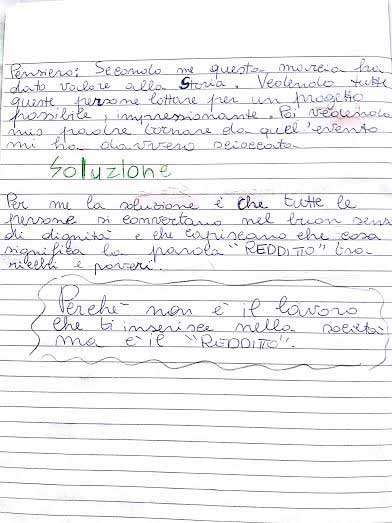 Pensiero: Secondo me questa marcia ha
dato valore alla Storia. Vedendo tutte
queste persone lottare per un progetto
possibile, impressionante. Poi vedendo
mio padre tornare da quel'evento
mi ha davvero scioccato.
Soluzione
Per me la soluzione è che tutte le
persone si convertano nel buon sens
di dignità e che capiscano che cosa
significa la parola "REDDITO" tra
ricchi e poveri.
Perchè non è il lavoro
che ti inserisce nella società
ma è il "REDDITO".